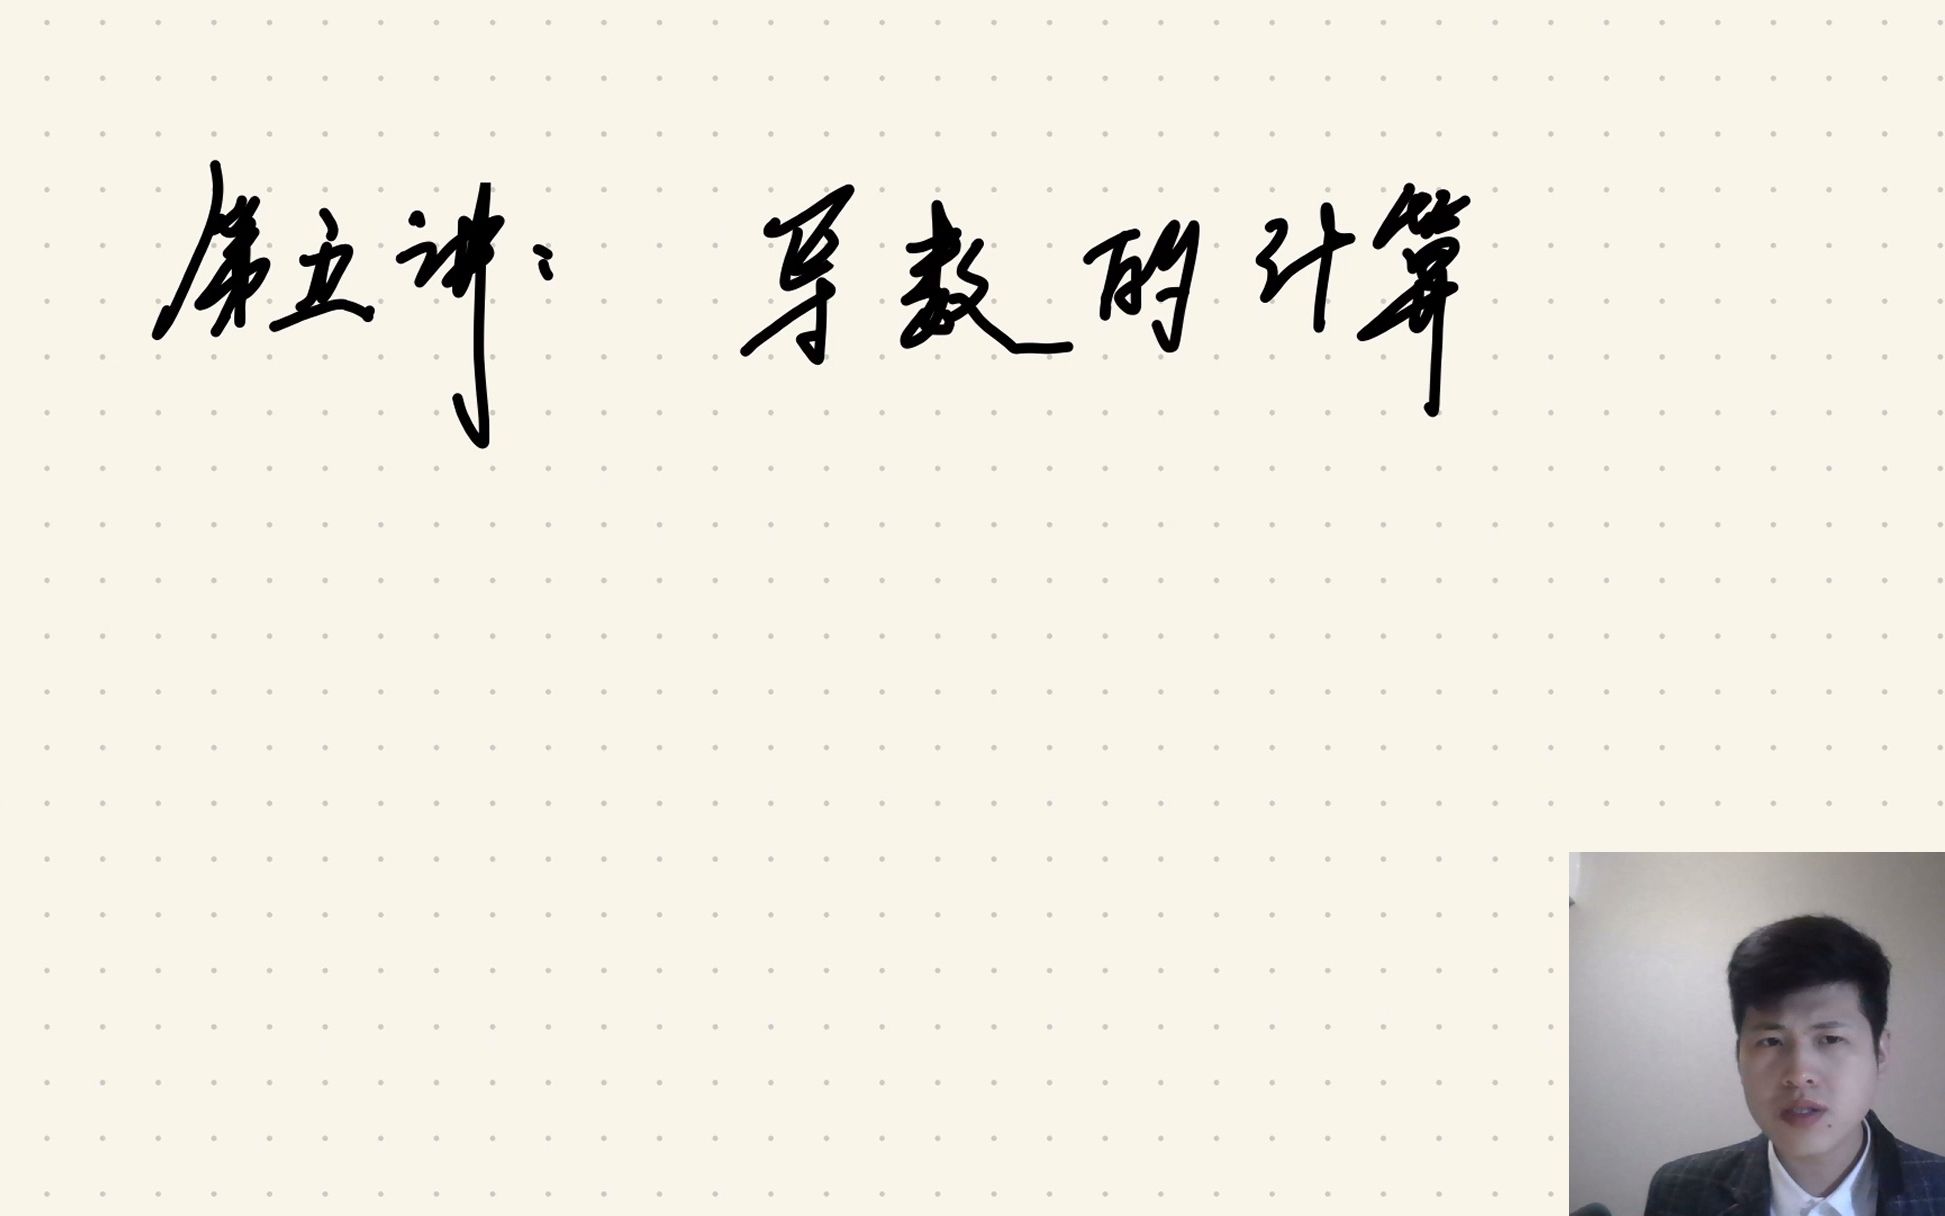 第五讲: 导数的计算